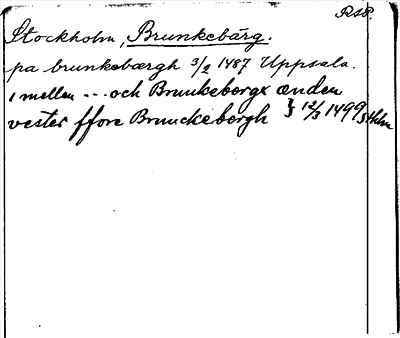 RSP.
Stockholm, Brunkebärg.
pa brunkebærgh 3/2 1487 Uppsala.
i mellen ... och Brunkebergx ænden
vester ffore Brunckebergh } 12/3 1499 Sthlm